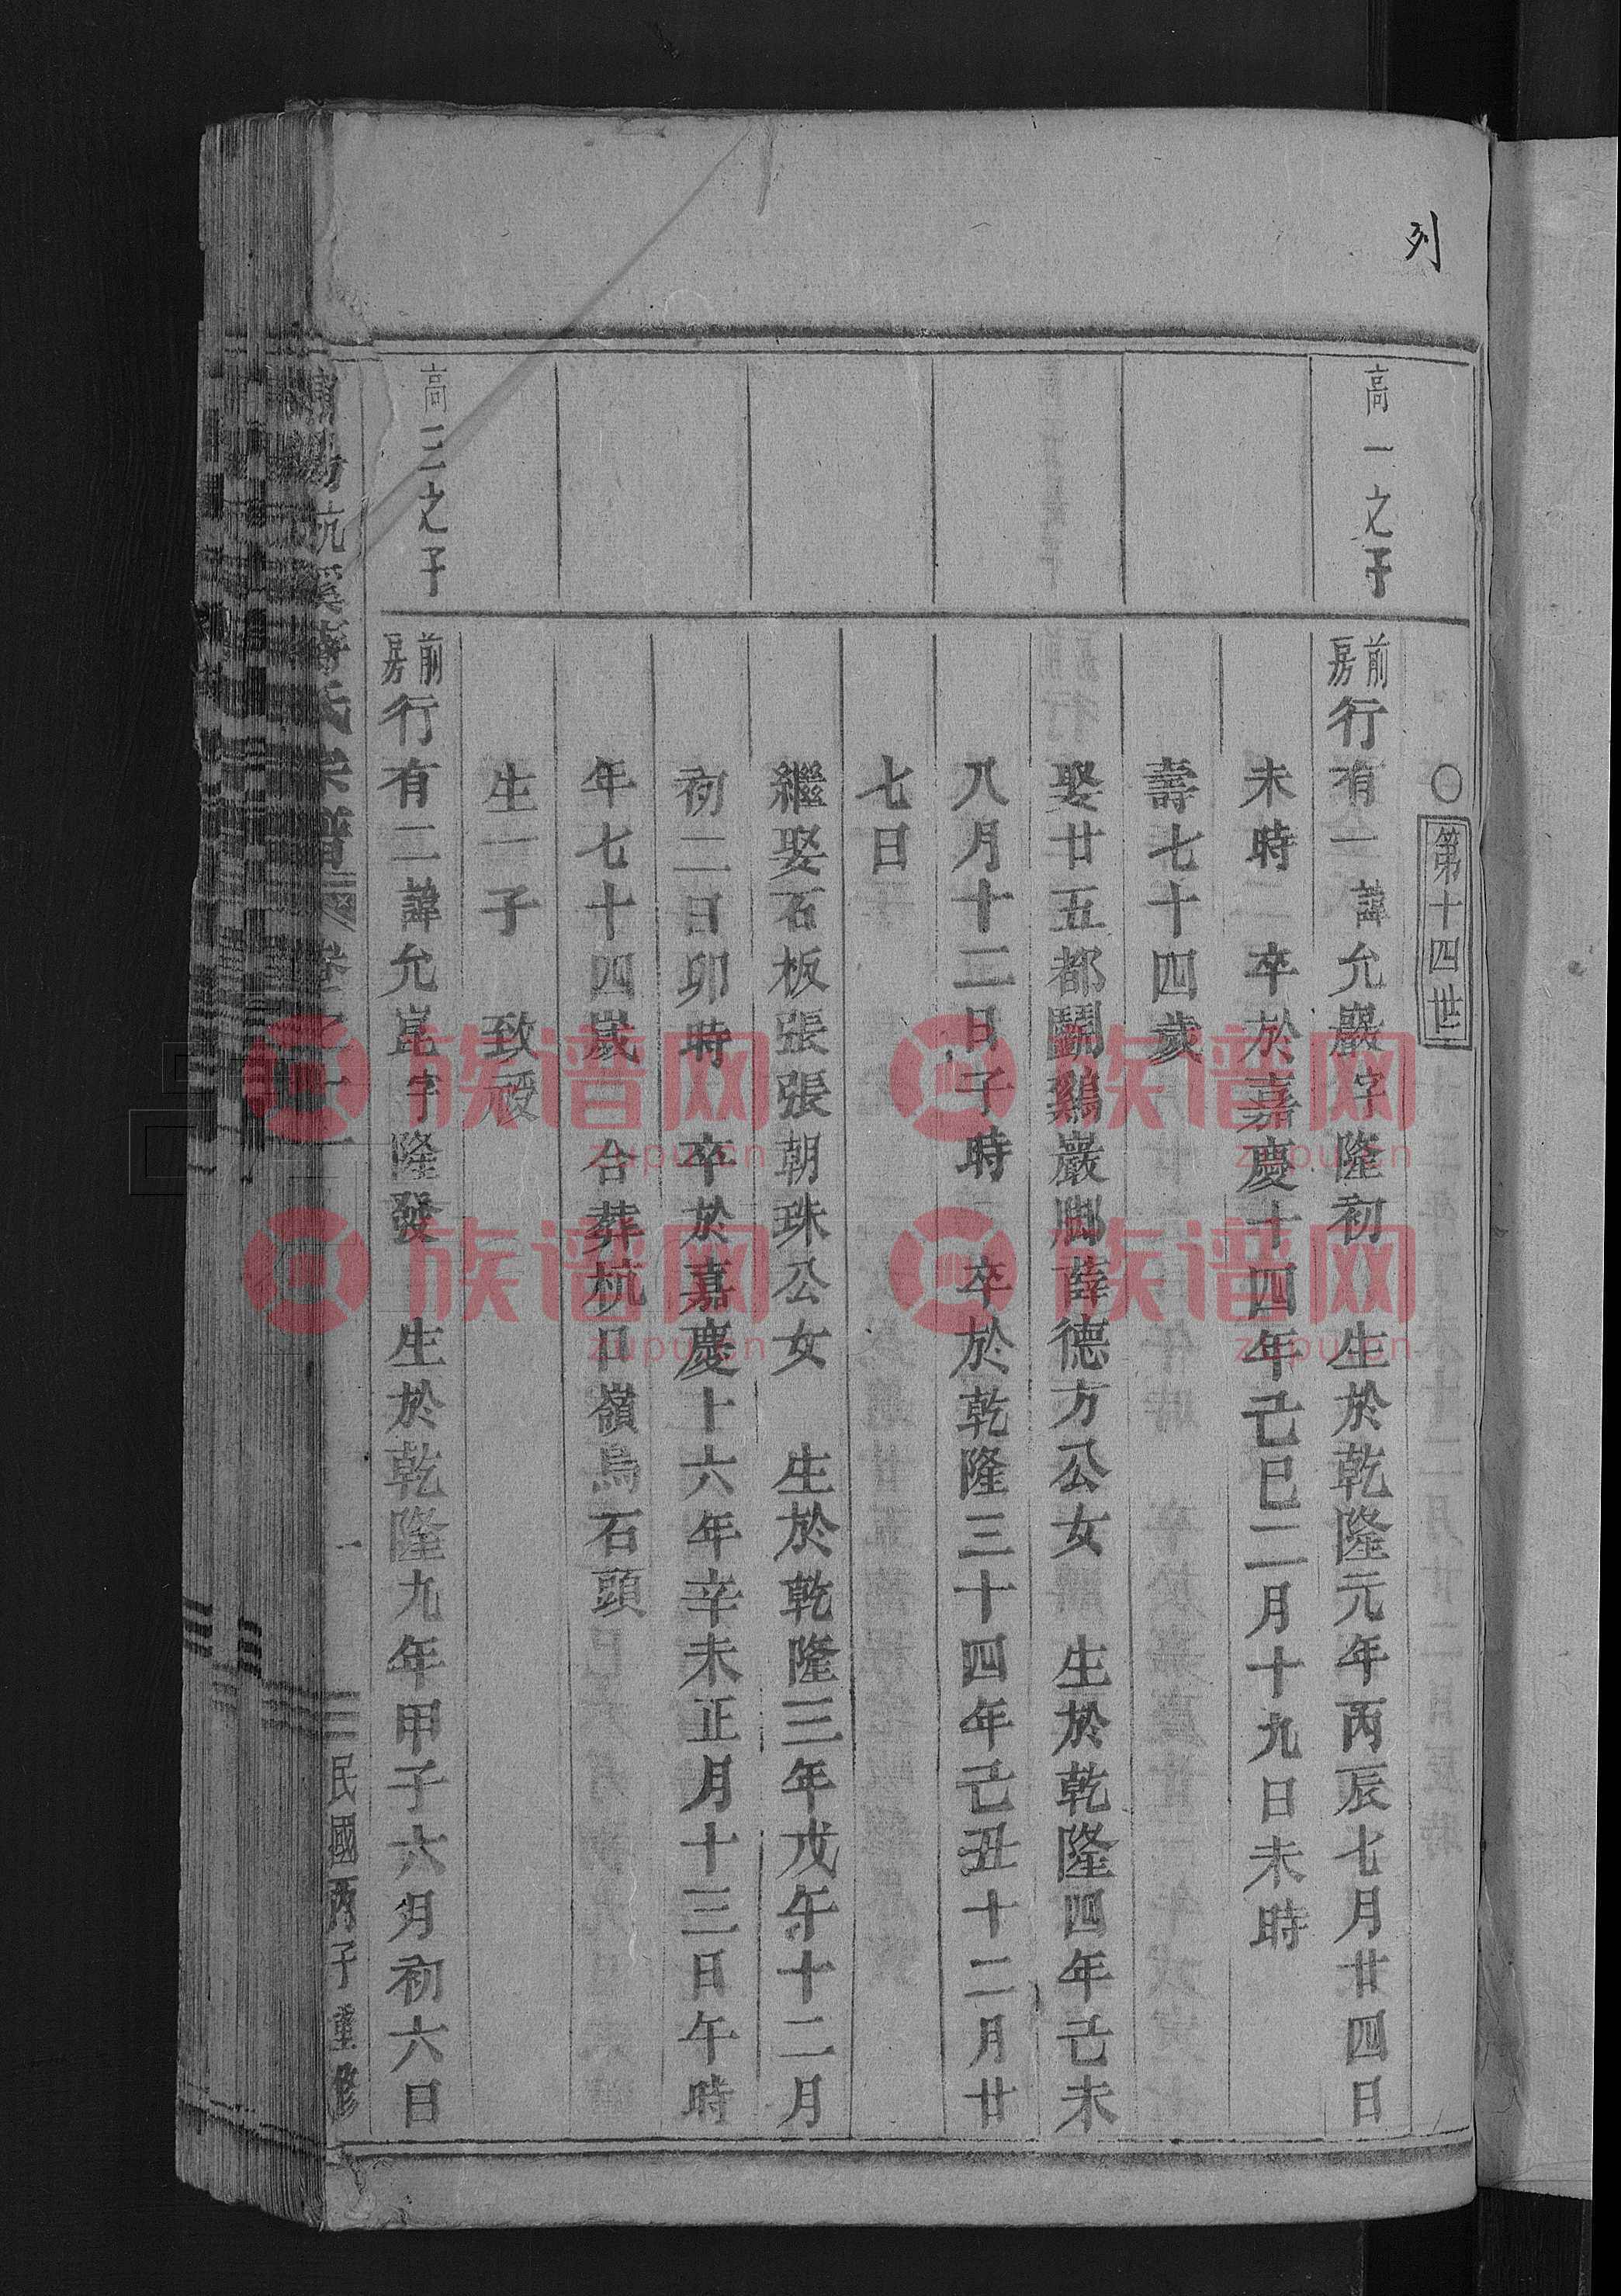 列
○第十四世
高一之子
前房行有一諱允巖字隆初　生於乾隆元年丙辰七月廿四日
未時　卒於嘉慶十四年己巳二月十九日未時
壽七十四歲
娶廿五都鬭鷄巖脚薛德方公女　生於乾隆四年己未
八月十二日子時　卒於乾隆三十四年己丑十二月廿
七日
繼娶石板張張朝珠公女　生於乾隆三年戊午十二月
初二日卯時　卒於嘉慶十六年辛未正月十三日午時
年七十四歲　合葬杭口嶺烏石頭
生一子　致
高三之子
前房行有二諱允崑字隆發　生於乾隆九年甲子六月初六日
杭溪 氏宗譜 卷之十
一
民國丙子重修
族谱网
zupu.cn
族谱网
zupu.cn
族谱网
zupu.cn
族谱网
zupu.cn